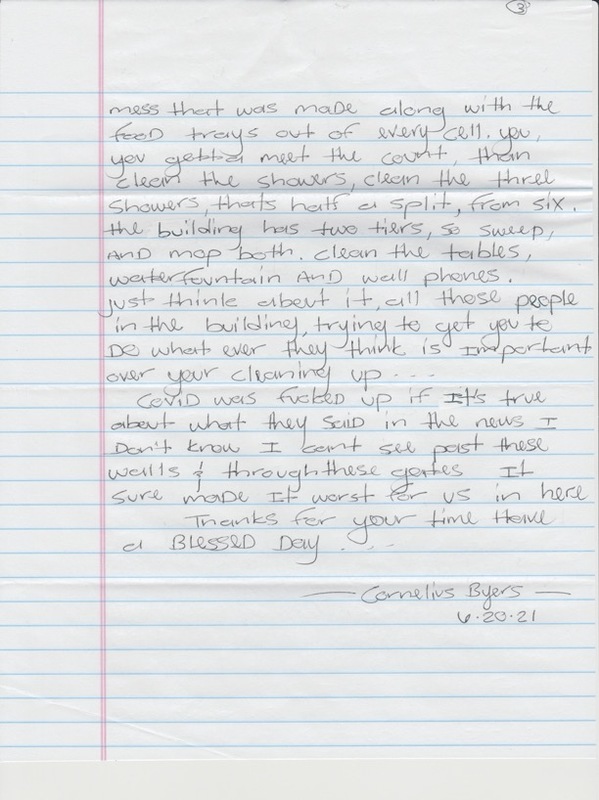 3
mess that was made along with the
food trays out of every cell. you,
you gotta meet the count, than
clean the showers, clean the three
showers, thats half a split, from six.
the building has two tiers, so sweep,
AND mop both. clean the tables,
waterfountain AND wall phones.
just think about it, all those people
in the building, trying to get you to
Do what ever they think is Important
over your cleaning up ...
Covid was fucked up if It's true
about what they said in the news I
Don't know I cant see past these
walls & through these gates It
sure made It worst for us in here
Thanks for your time Have
a BLESSED DAY . ...
— Cornelius Byers —
6.20.21